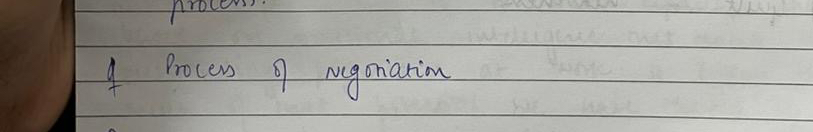 process.
Q Process of negotiation